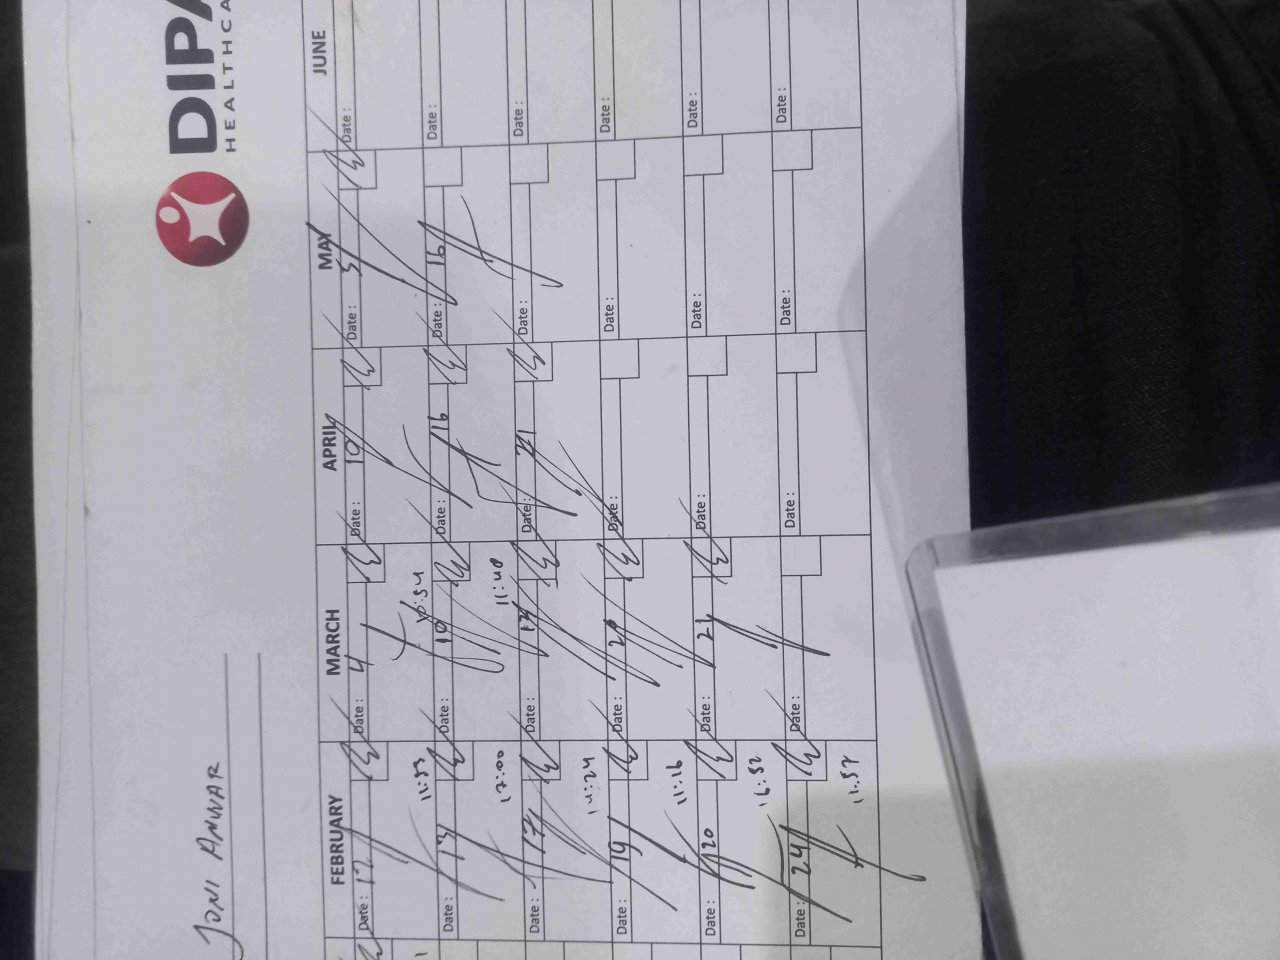 DIPA
HEALTHCA
JONI ANWAR
FEBRUARY MARCH APRIL MAY JUNE
Date : 12 Date : 4 Date : 10 Date : 5 Date :
11:33 10:54
Date : 13 Date : 10 Date : 16 Date : 16 Date :
17:00 11:40
Date : 17 Date : 17 Date : 21 Date : Date :
14:24
Date : 19 Date : 20 Date : Date : Date :
11:16
Date : 20 Date : 21 Date : Date : Date :
16:52
Date : 24 Date : Date : Date : Date :
11:57